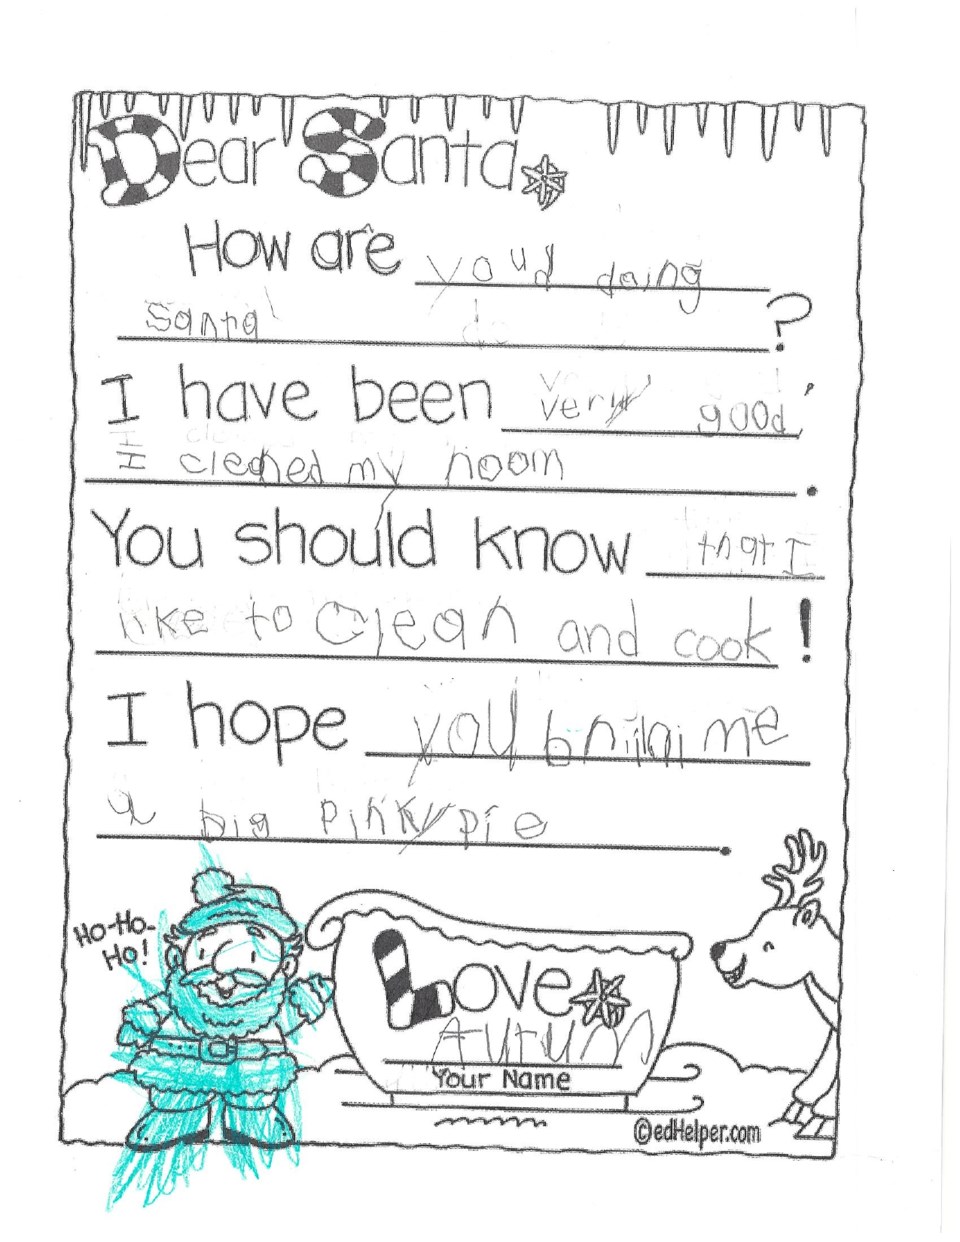 Dear Santa
How are youd doing
Santa ?
I have been very good
I cleaned my room.
You should know that I
like to clean and cook!
I hope you bring me
a big pinkypie.
Ho-Ho-
Ho!
Love
Autum
Your Name
©edHelper.com